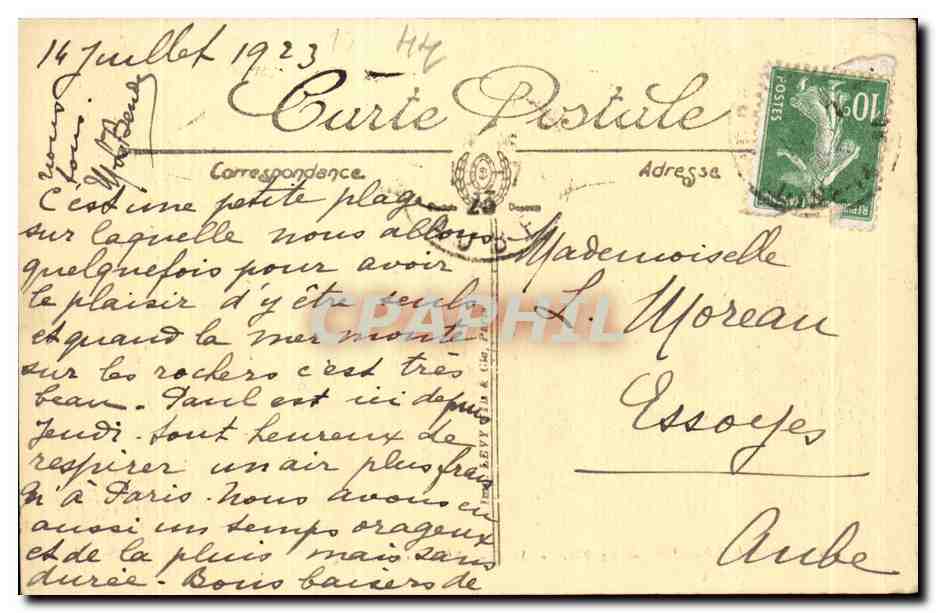 14 Juillet 1923
44
Carte Postale
Correspondance
Adresse
10c
POSTES
C'est une petite plage
sur laquelle nous allons
quelquefois pour avoir
le plaisir d'y être seuls
et quand la mer monte
sur les rochers c'est très
beau. Paul est ici depuis
Jeudi. tout heureux de
respirer un air plus frais
qu'à Paris. Nous avons eu
aussi un temps orageux
et de la pluie mais sans
durée. Bons baisers de
nous
tous
Mademoiselle
L. Moreau
Essoyes
Aube
LEVY & Cie, PARIS
CPAPHIL